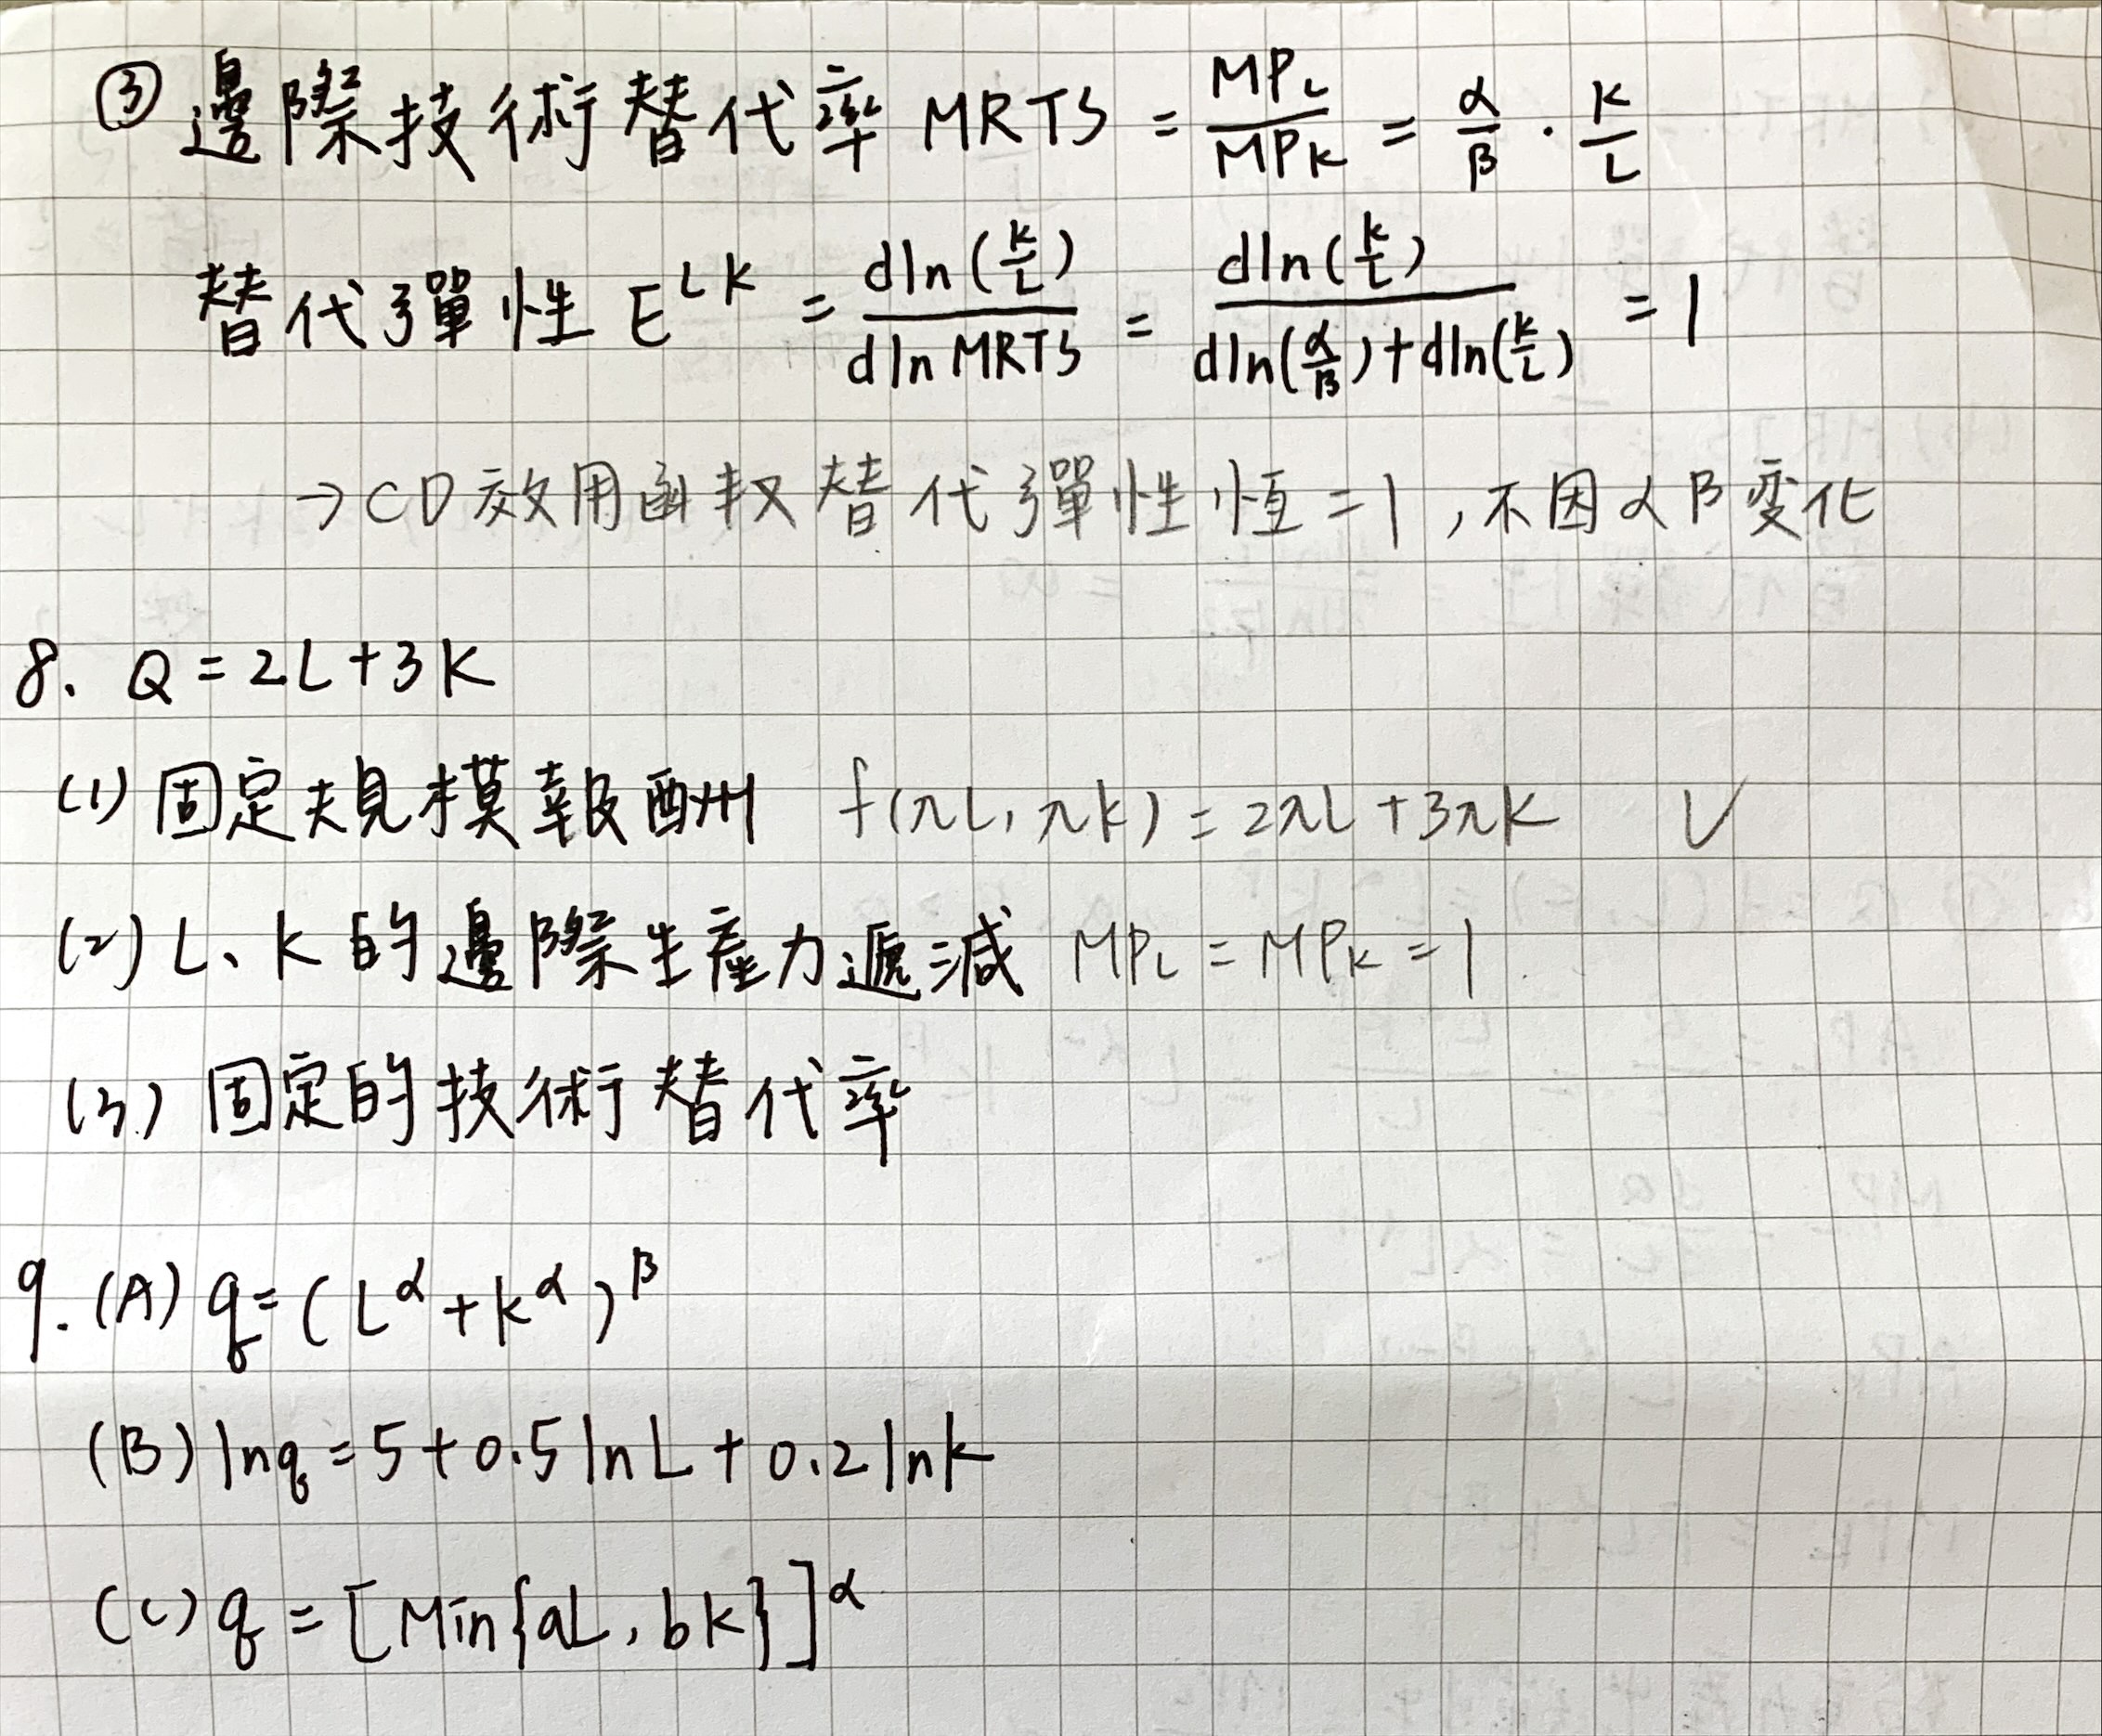 ③ 邊際技術替代率 MRTS = MPL/MPK = α/β · K/L
替代彈性 E^LK = dln(K/L)/dlnMRTS = dln(K/L)/(dln(α/β)+dln(K/L)) = 1
→ CD效用函数替代彈性恆=1,不因αβ变化
8. Q = 2L+3K
(1) 固定規模報酬 f(πL, πK) = 2πL+3πK ✓
(2) L、K的邊際生產力遞減 MPL = MPK = 1
(3) 固定的技術替代率
9. (A) q = (L^α + K^α)^β
(B) lnq = 5+0.5lnL+0.2lnK
(C) q = [Min{aL, bK}]^α